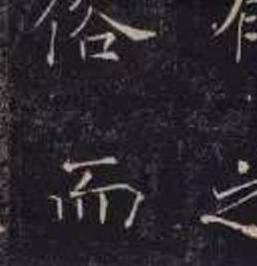 之
俗而